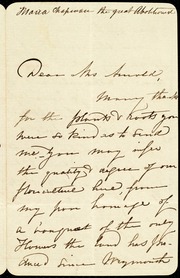 Maria Chapman the great Abolitionist
Dear Mrs Arnold,
Many thanks
for the plants & roots you
were so kind as to send
me. You may infer
the quality & degree of our
floriculture here, from
my poor homage of
a bouquet of the only
flowers the wind has
since Weymouth